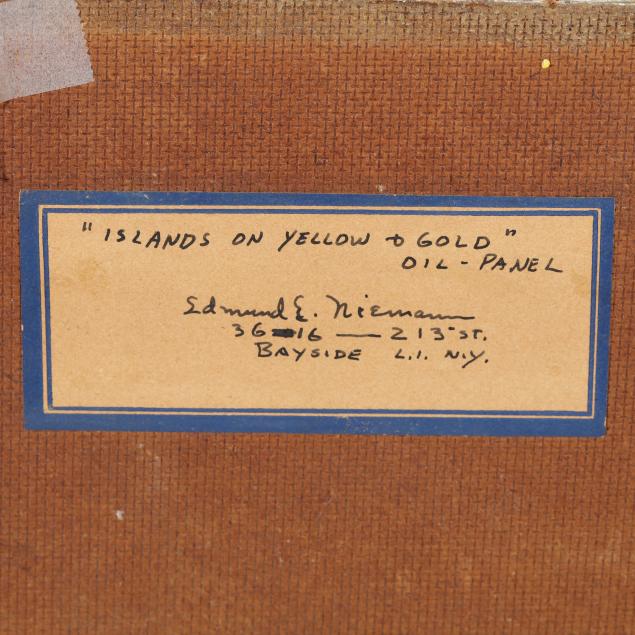 "ISLANDS ON YELLOW & GOLD"
OIL - PANEL
Edmund E. Niemann
36-16 — 213 ST.
BAYSIDE L.I. N.Y.